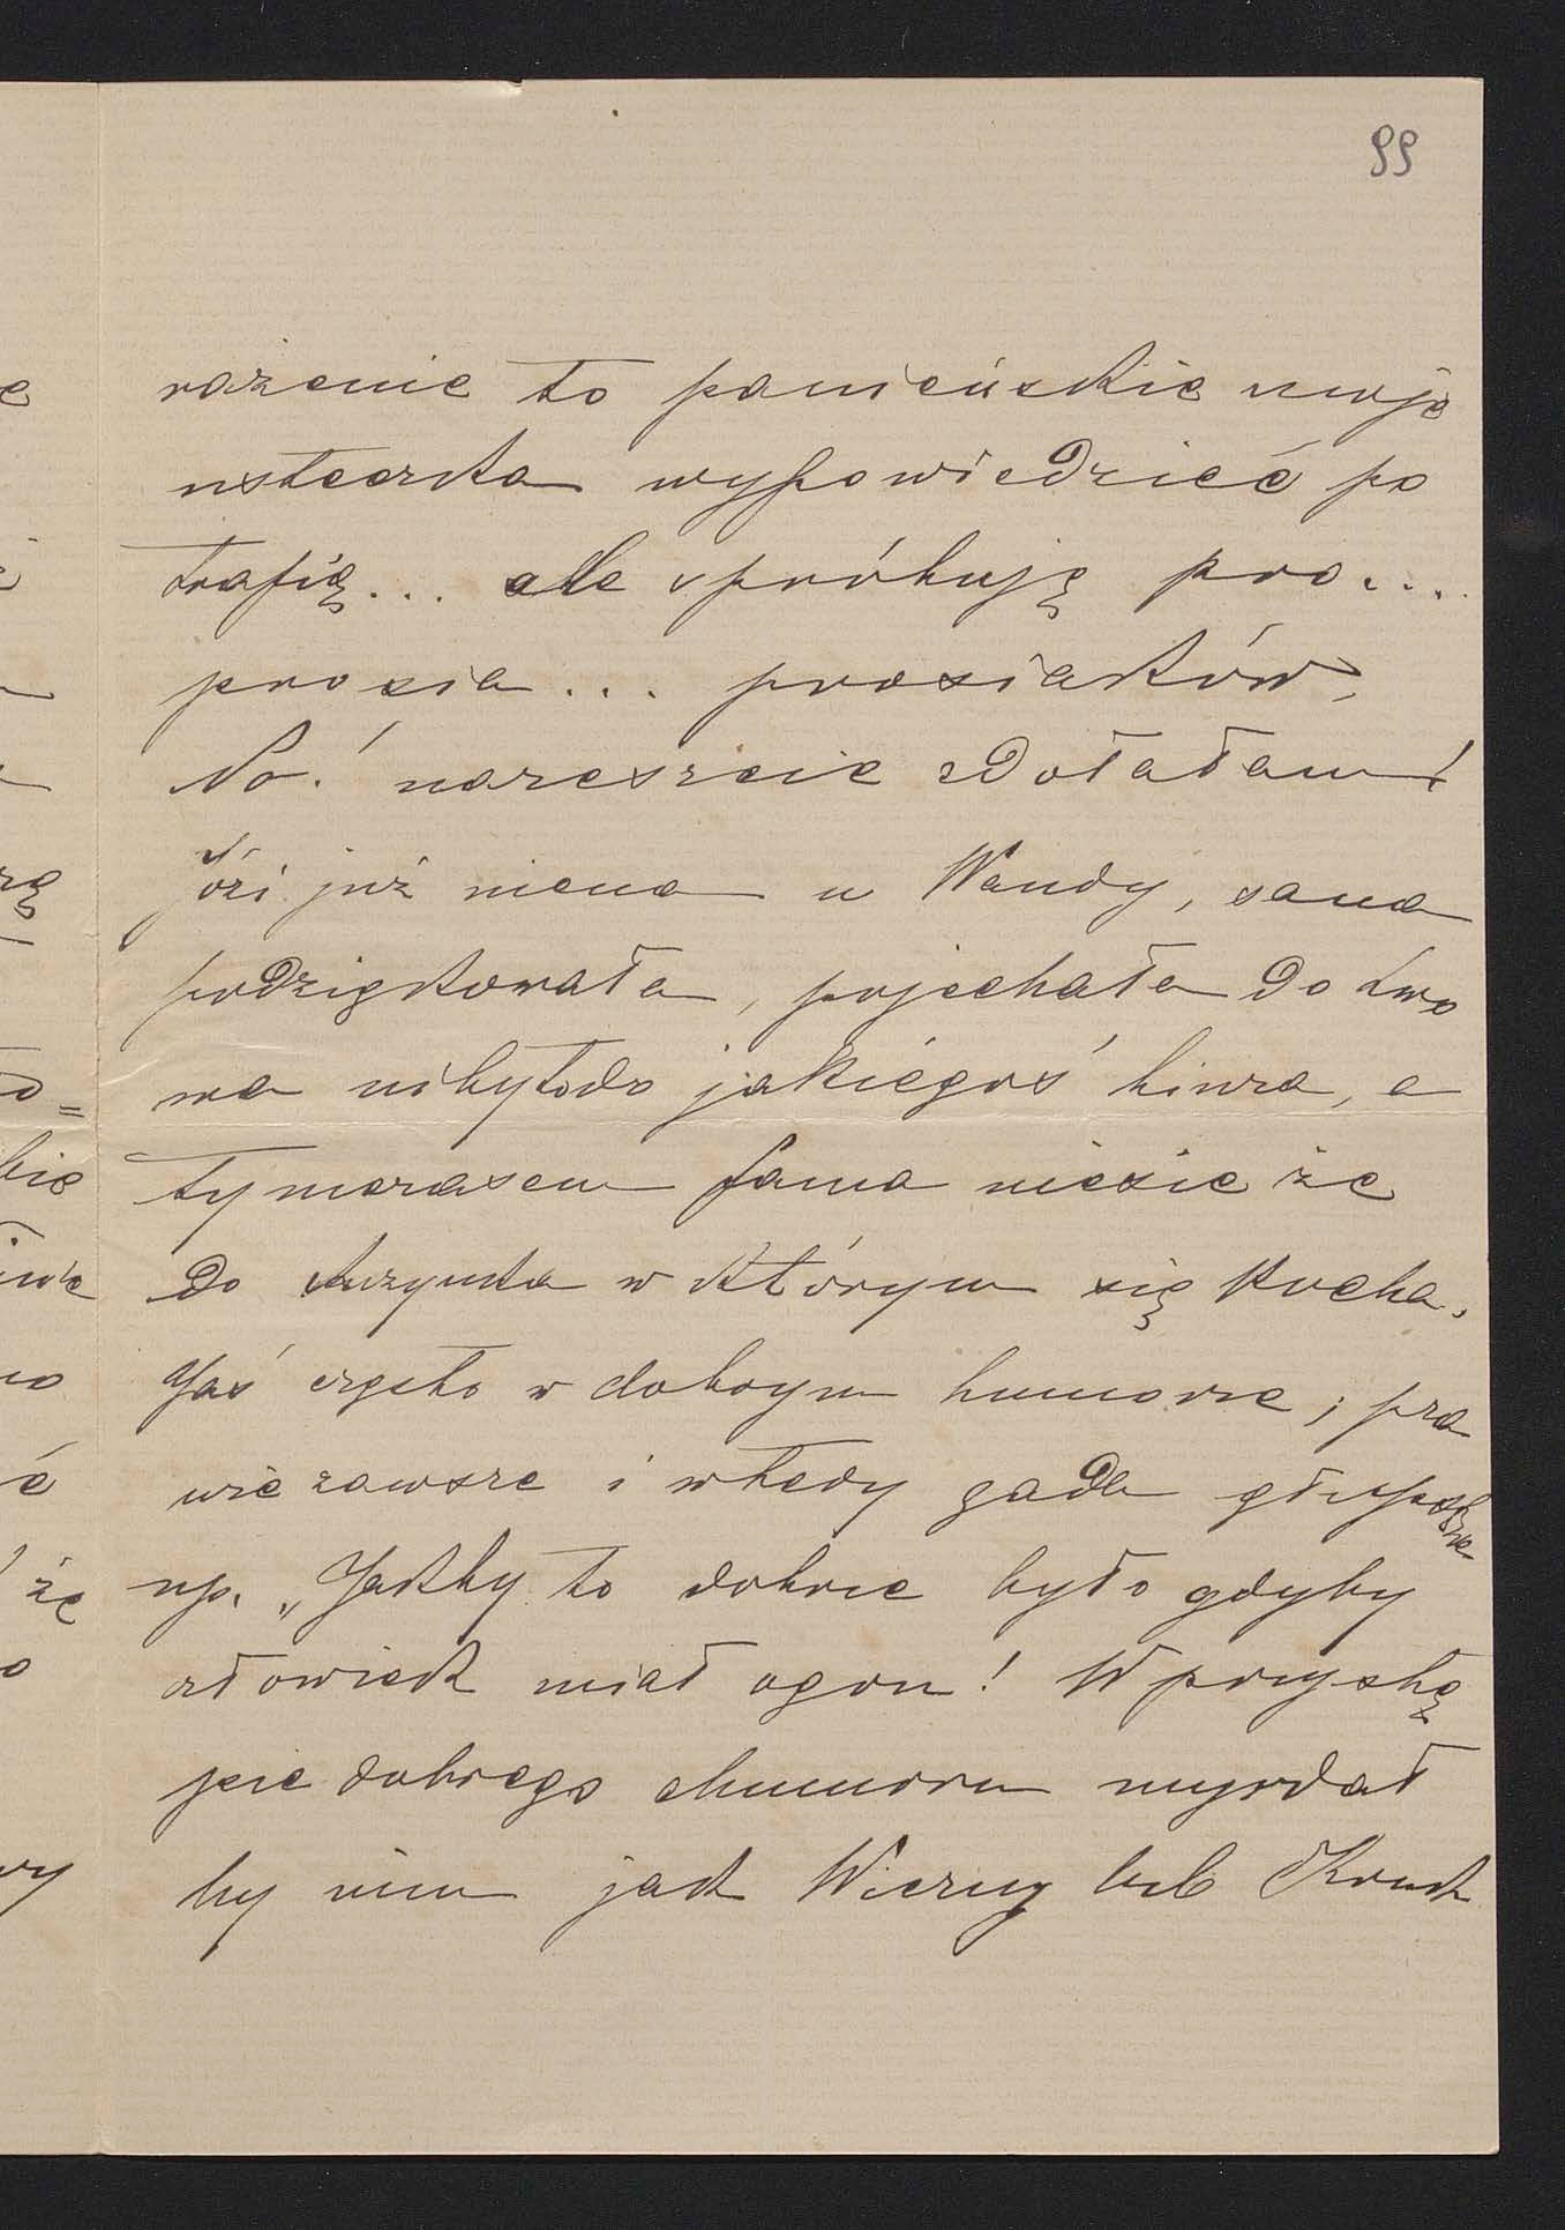 99
rażenie to panieńskie moje
usteczka wypowiedzieć po
trafią... ale spróbuję pro...
prosia... prosiaków,
No! nareszcie zdołałam!
Józi już niema u Wandy, sama
podziękowała, pojechała do Lwo
wa niby to do jakiegoś biura, a
tymczasem fama niesie że
do kuzynka w którym się kocha.
Jaś często w dobrym humorze; pra
wie zawsze i wtedy gada głupstwa
np. „Jakby to dobrze było gdyby
człowiek miał ogon! W przystę
pie dobrego chumoru myrdał
by nim jak Wierny lub Kruk